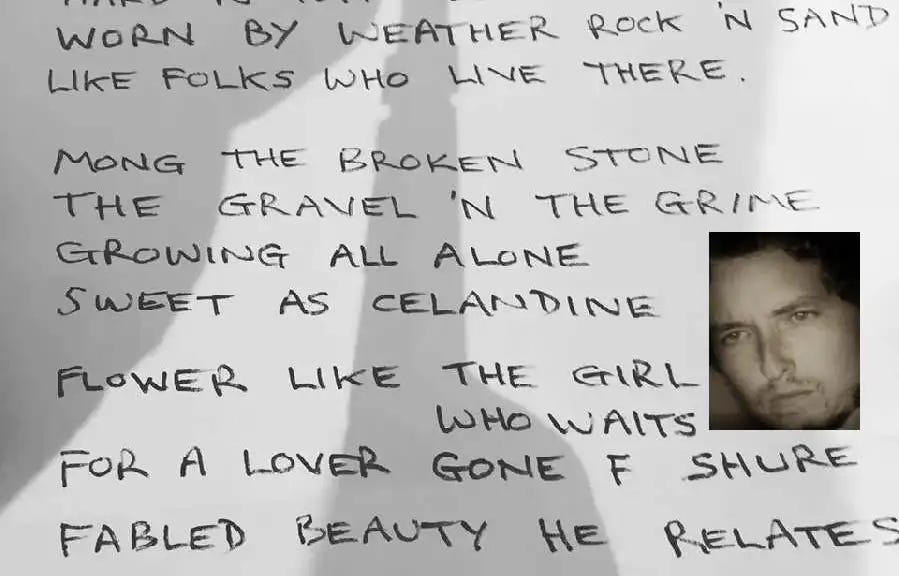 WORN BY WEATHER ROCK 'N SAND
LIKE FOLKS WHO LIVE THERE.
MONG THE BROKEN STONE
THE GRAVEL 'N THE GRIME
GROWING ALL ALONE
SWEET AS CELANDINE
FLOWER LIKE THE GIRL
WHO WAITS
FOR A LOVER GONE F SHURE
FABLED BEAUTY HE RELATES